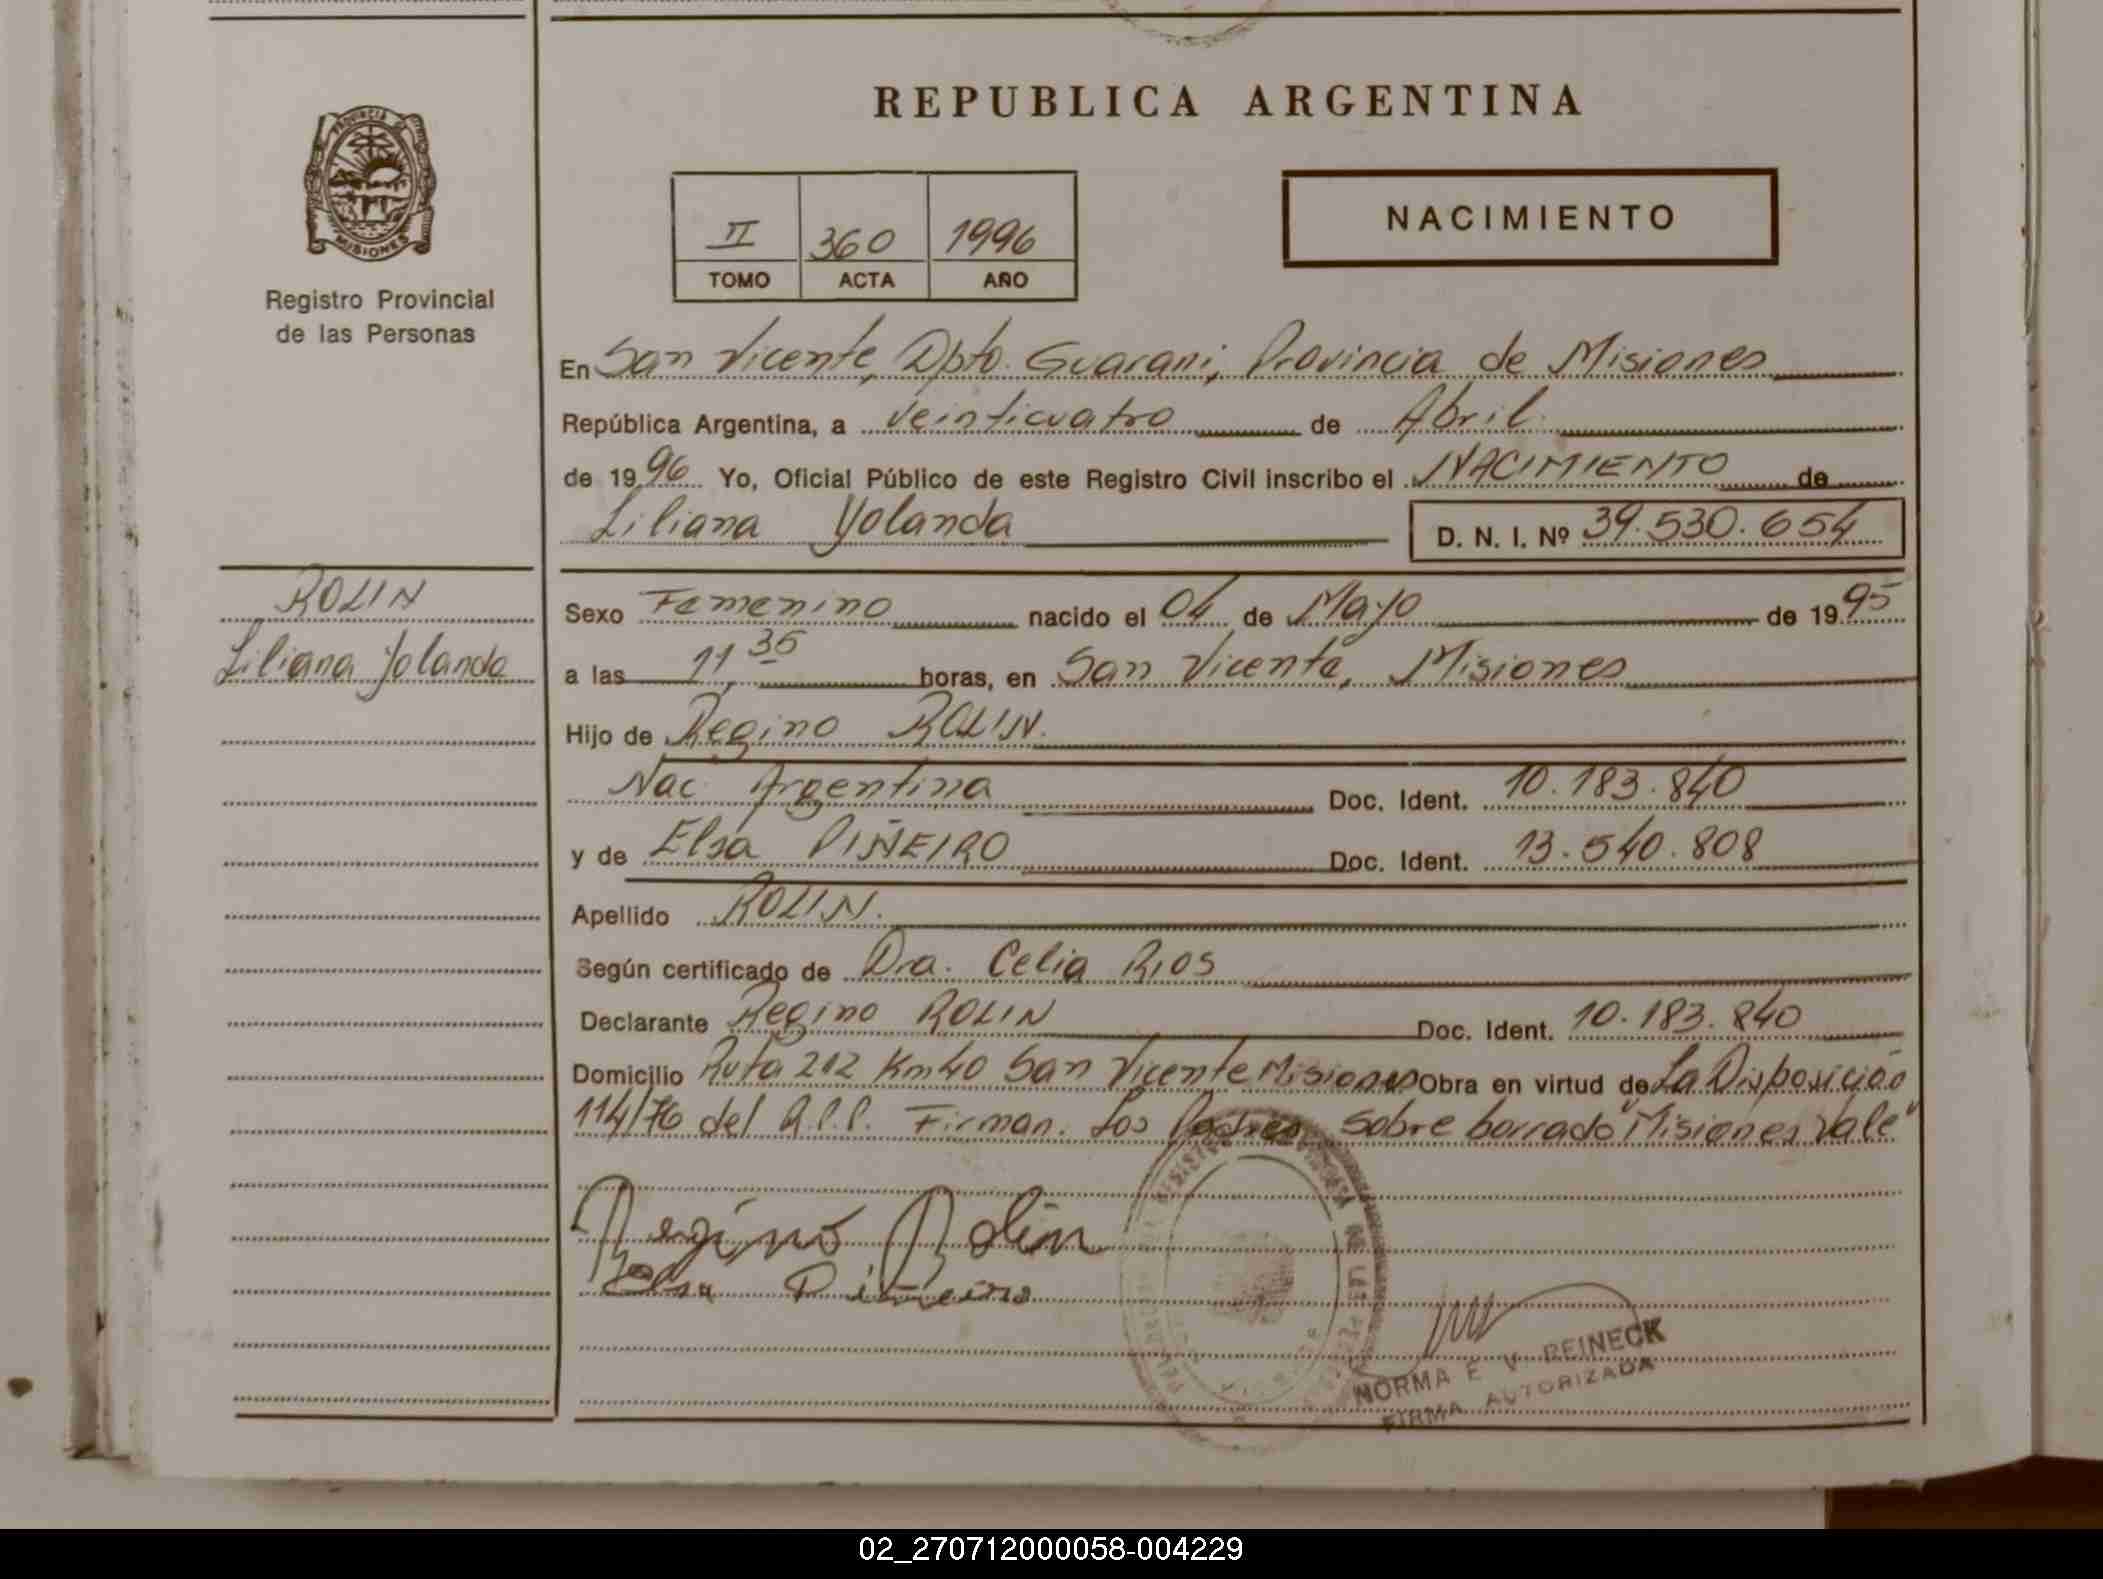 REPUBLICA ARGENTINA
PROVINCIA DE MISIONES
Registro Provincial
de las Personas
II 360 1996
TOMO ACTA AÑO
NACIMIENTO
En San Vicente, Dpto. Guarani, Provincia de Misiones
República Argentina, a veinticuatro de Abril
de 1996 Yo, Oficial Público de este Registro Civil inscribo el NACIMIENTO de
Liliana Yolanda D. N. I. Nº 39.530.654
ROLIN
Liliana Yolanda
Sexo Femenino nacido el 04 de Mayo de 1995
a las 11,35 horas, en San Vicente, Misiones
Hijo de Regino ROLIN.
Nac. Argentina Doc. Ident. 10.183.840
y de Elsa PIÑEIRO Doc. Ident. 13.540.808
Apellido ROLIN.
Según certificado de Dra. Celia RIOS
Declarante Regino ROLIN Doc. Ident. 10.183.840
Domicilio Ruta 212 Km 40 San Vicente Misiones Obra en virtud de La Disposición
114/76 del R.P.P. Firman. Los Padres Sobre borrado "Misiones Vale"
Regino Rolin
Elsa Piñeiro
NORMA E V REINECK
FIRMA AUTORIZADA
02_270712000058-004229